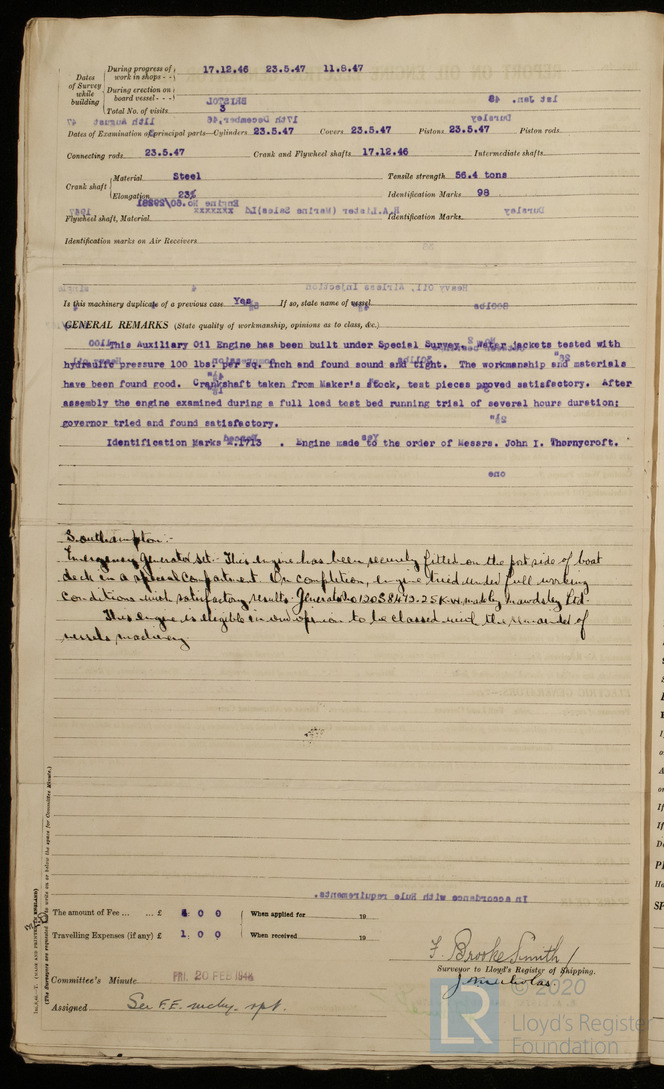 Dates of Survey while building
During progress of work in shops - - 17.12.46 23.5.47 11.8.47
During erection on board vessel - - -
Total No. of visits 3
Dates of Examination of principal parts—Cylinders 23.5.47 Covers 23.5.47 Pistons 23.5.47 Piston rods
Connecting rods 23.5.47 Crank and Flywheel shafts 17.12.46 Intermediate shafts
Crank shaft Material Steel Tensile strength 56.4 tons
Elongation 23% Identification Marks 98
Flywheel shaft, Material Identification Marks
Identification marks on Air Receivers
Is this machinery duplicate of a previous case Yes If so, state name of vessel
GENERAL REMARKS (State quality of workmanship, opinions as to class, &c.)
This Auxiliary Oil Engine has been built under Special Survey. Water jackets tested with
hydraulic pressure 100 lbs. per sq. inch and found sound and tight. The workmanship and materials
have been found good. Crankshaft taken from Maker's stock, test pieces proved satisfactory. After
assembly the engine examined during a full load test bed running trial of several hours duration;
governor tried and found satisfactory.
Identification Marks .1713 . Engine made to the order of Messrs. John I. Thornycroft.
Southampton:-
Emergency Generator set:- This engine has been securely fitted on the port side of boat
deck in a special compartment. On completion, engine tried under full working
conditions with satisfactory results. Generator No 12038472. 25 K.W. made by Mawdsley Ltd.
This engine is eligible in our opinion to be classed with the remainder of
vessels machinery.
The amount of Fee ... ... £ 4 0 0 When applied for 19
Travelling Expenses (if any) £ 1 0 0 When received 19
F. Brooke Smith /
Surveyor to Lloyd's Register of Shipping.
J. Nicholas.
Committee's Minute FRI. 20 FEB 1948
Assigned See F.E. mchy. rpt.
(MADE AND PRINTED IN ENGLAND)
(The Surveyors are requested not to write on or below the space for Committee Minute.)
LR © 2020
Lloyd's Register
Foundation